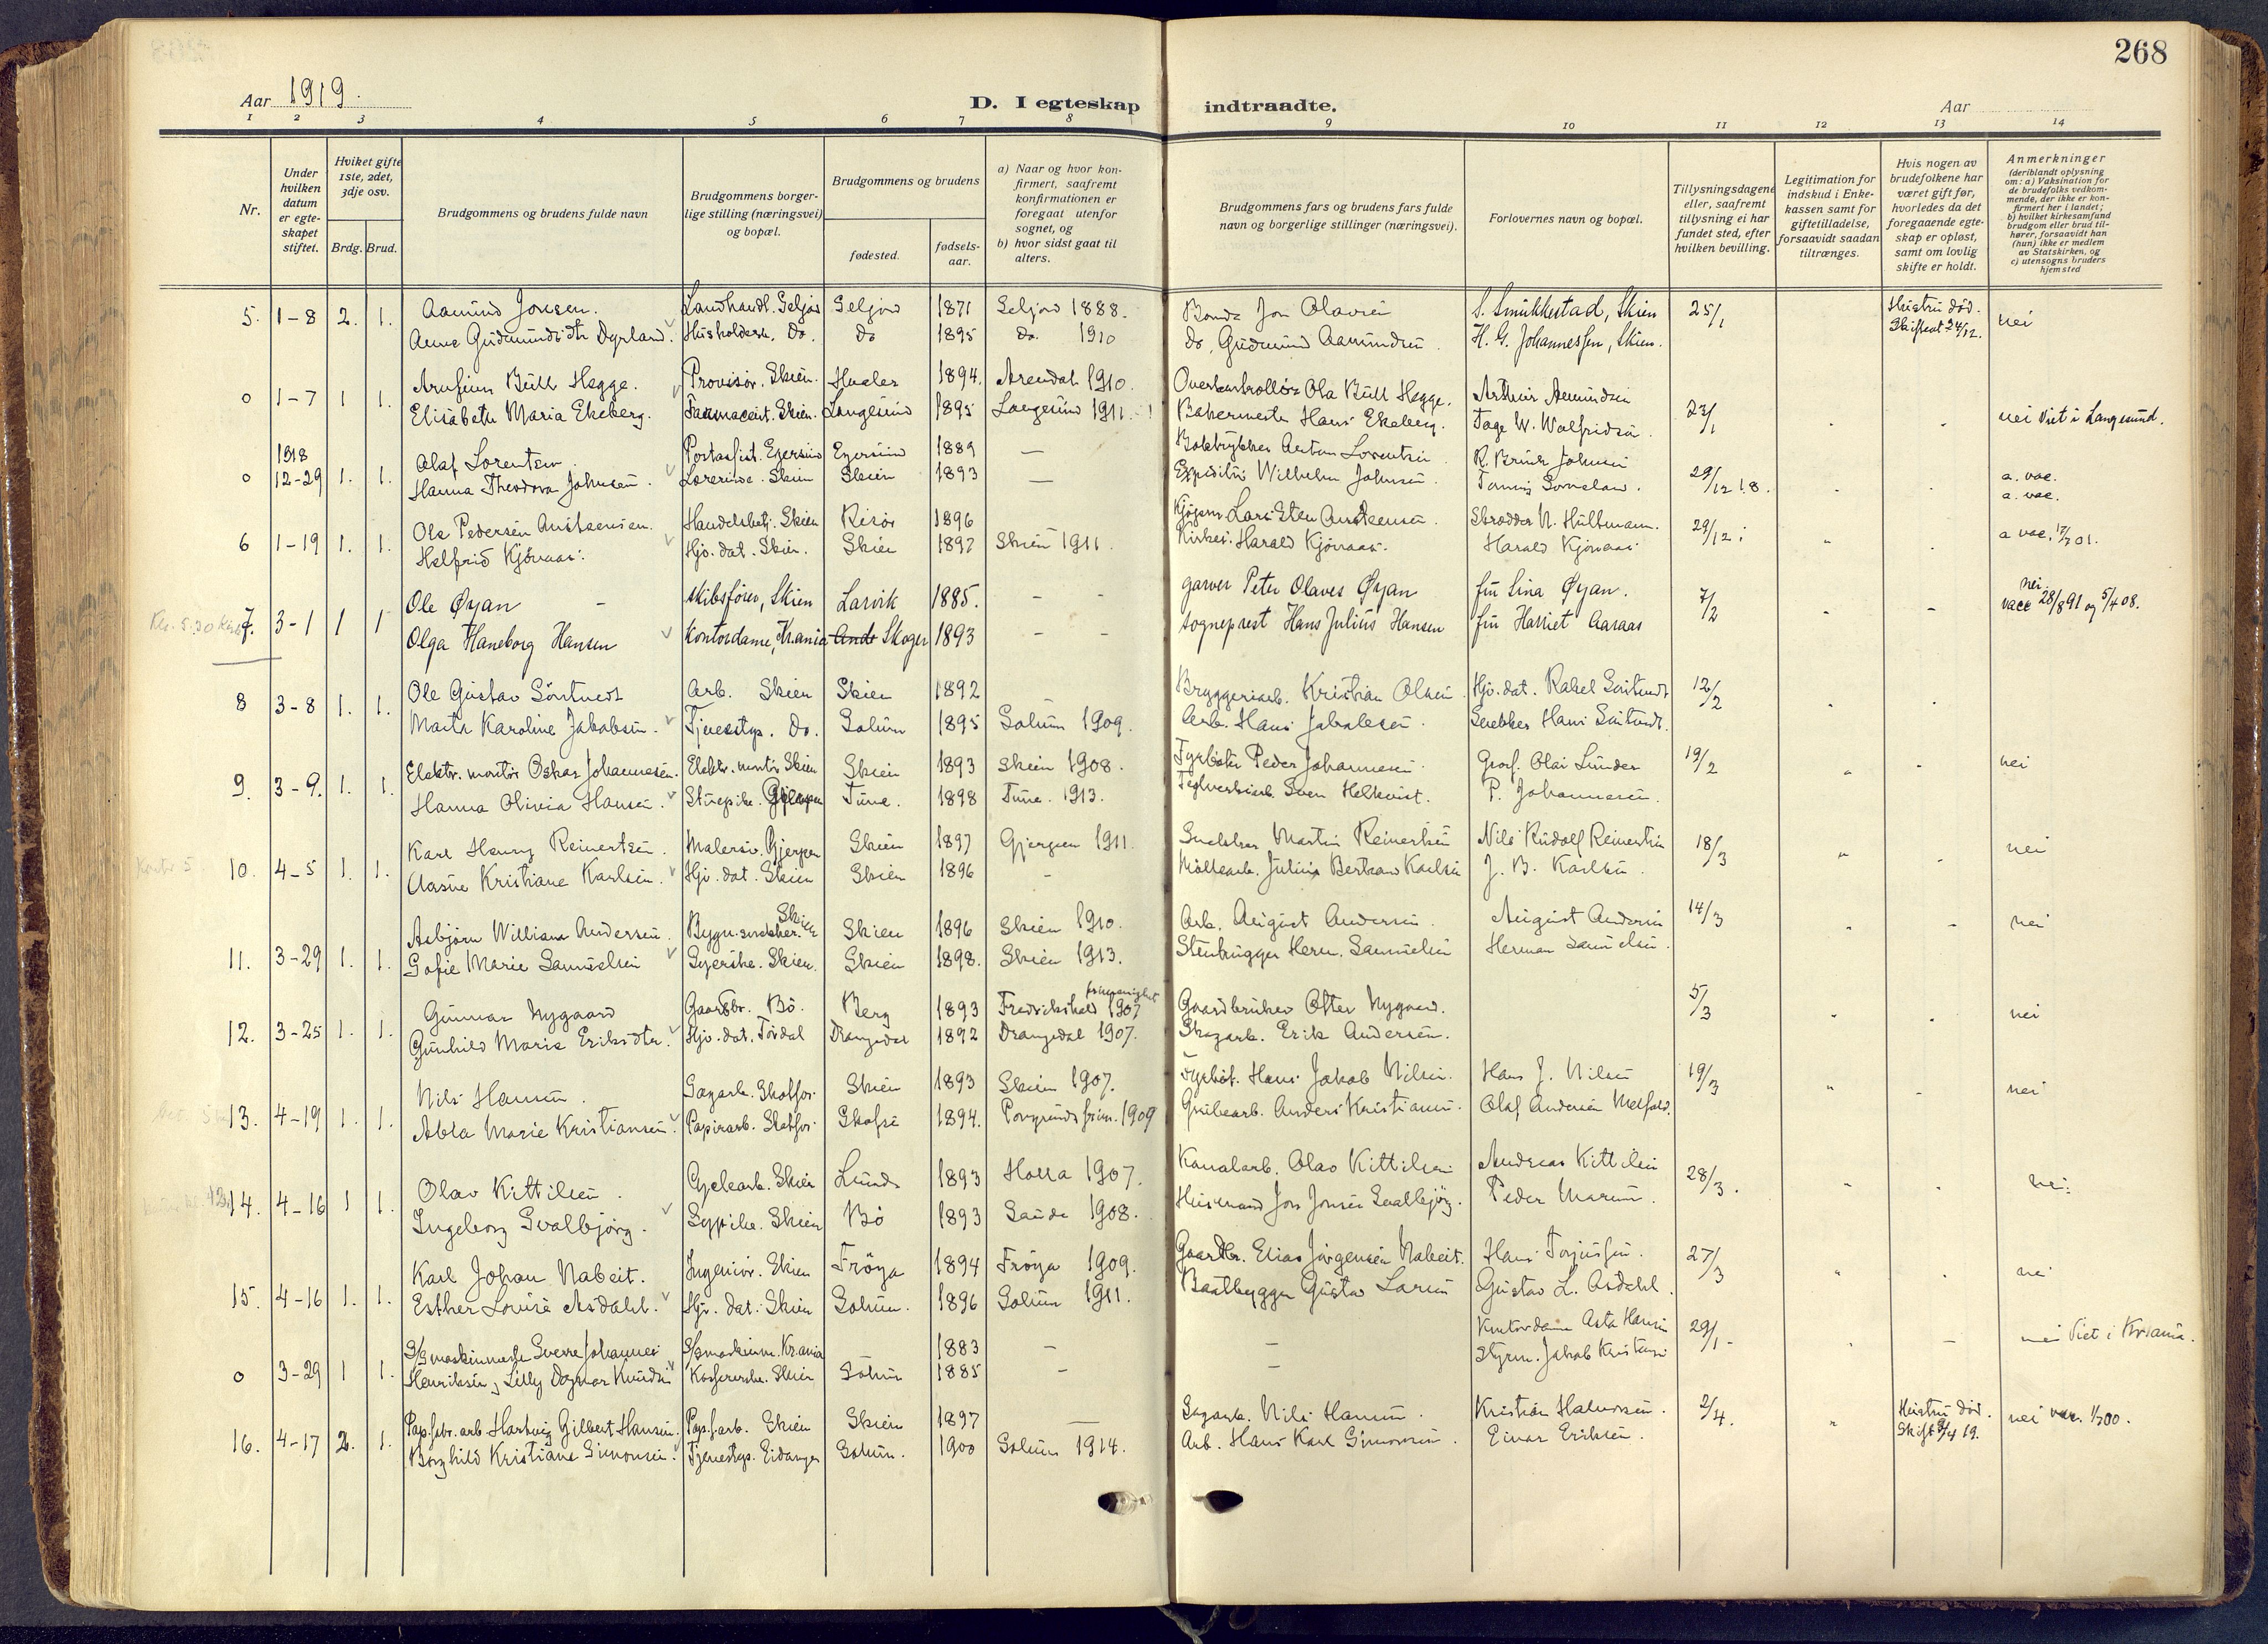 268
Aar 1919.
D. I egteskap indtraadte.
Aar
1 2 3 4 5 6 7 8 9 10 11 12 13 14
Nr.
Under hvilken datum er egteskapet stiftet.
Hviket gifte 1ste, 2det, 3dje osv.
Brdg. Brud.
Brudgommens og brudens fulde navn
Brudgommens borgerlige stilling (næringsvei) og bopæl.
Brudgommens og brudens
fødested.
fødselsaar.
a) Naar og hvor konfirmert, saafremt konfirmationen er foregaat utenfor sognet, og
b) hvor sidst gaat til alters.
Brudgommens fars og brudens fars fulde navn og borgerlige stillinger (næringsvei).
Forlovernes navn og bopæl.
Tillysningsdagene eller, saafremt tillysning ei har fundet sted, efter hvilken bevilling.
Legitimation for indskud i Enkekassen samt for giftetilladelse, forsaavidt saadan tiltrænges.
Hvis nogen av brudefolkene har været gift før, hvorledes da det foregaaende egteskap er opløst, samt om lovlig skifte er holdt.
Anmerkninger (deriblandt oplysning om: a) Vaksination for de brudefolks vedkommende, der ikke er konfirmert her i landet; b) hvilket kirkesamfund brudgom eller brud tilhører, forsaavidt han (hun) ikke er medlem av Statskirken, og c) utensogns bruders hjemsted
5. 1-8 2. 1. Aamund Jonsen. Landhandl. Seljord Seljord 1871 Seljord 1888. Bonde Jon Olavsen S. Smukkestad, Skien 25/1 Hustru død. nei
Anne Gudmundsdtr Dyrland. Husholdersk. Do. Do 1895 Do. 1910 Do. Gudmund Aamundsen. H. G. Johannessen, Skien.
0 1-7 1 1. Bull Hegge. Provisor. Skien. 1894. Arendal 1910. Ola Bull Hegge. Arthur Amundsen 23/1 nei Viet i Langesund.
Elisabeth Maria Ekeberg. Farmaceut. Skien. Langesund 1895 Langesund 1911. Bakermester Hans Ekeberg. Tage W. Walfridsen.
1918
0 12-29 1. 1. Olaf Lorentsen Egersund Egersund 1889 — Boktrykker Anton Lorentsen R. Johnsen 29/12 18. a. vac.
Hanna Theodora Johnsen. Lærerinde. Skien Skien 1893 — Wilhelm Johnsen. a. vac.
6 1-19 1. 1. Ole Pedersen Austaensen. Handelsbetj. Skien Risør 1896 Skrædder N. Hultmann. 29/12 a vac.
Helfrid Kjønaas. Hjv. dat. Skien. Skien 1897 Skien 1911. Harald Kjønaas. Harald Kjønaas
7. 3-1 1 1 Ole Øyan skibsfører, Skien Larvik 1885. - - garver Peter Olaves Øyan fru Lina Øyan. 7/2 nei
Olga Haneborg Hansen Kontordame, Krania Skoger 1893 - - sogneprest Hans Julius Hansen fru Harriet Aaraas vacc 28/8 91 og 5/4 08.
8 3-8 1. 1. Ole Gustav Sørtvedt Arb. Skien Skien 1892 — Bryggeriarb. Kristian Olsen. Hjv. dat. Rakel 12/2
Karoline Jakobsen. Do. Solum 1895 Solum 1909. Arb. Hans Jakobsen. Snekker Hans
9. 3-9. 1. 1. Elektr. montør Oskar Johannesen. Elektr. montør Skien Skien 1893 Skien 1908. Fyrbøter Peder Johannesen. Olai Lunder 19/2 nei
Hanna Olivia Hansen. Tune. 1898 Tune. 1913. Sven Helkvist. P. Johannesen.
10. 4-5 1. 1. Karl Henry Reinertsen. Malersv. Gjerpen Skien 1897 Gjerpen 1911. Snekker Martin Reinertsen Nils Rudolf Reinertsen 18/3 nei
Aasne Kristiane Karlsen. Hjv. dat. Skien Skien 1896 - Møllearb. Julius Bertran Karlsen J. B. Karlsen.
11. 3-29 1. 1. Asbjørn William Andersen. Bygn.snekker. Skien Skien 1896 Skien 1910. Arb. August Andersen. August Andersen 14/3 nei
Sofie Marie Samuelsen Syerske. Skien. Skien 1898. Skien 1913. Stenhugger Herm. Samuelsen Herman Samuelsen.
12. 3-25 1. 1. Gunnar Nygaard Gaardbr. Bø. Berg 1893 Fredrikshald 1907 Gaardbruker Otter Nygaard. 5/3 nei
Gunhild Marie Eriksdtr. Hjv. dat. Tørdal Drangedal 1892 Drangedal 1907. Skogarb. Erik Andersen.
13. 4-19 1. 1. Nils Hansen. Sagarb. Skotfos. Skien 1893 Skien 1907. Fyrbøt. Hans Jakob Nilsen. Hans J. Nilsen 19/3 nei
Abla Marie Kristiansen. Papirarb. Skotfos. 1894. Porsgrunds frim. 1909 Grubearb. Anders Kristiansen. Olaf Andersen Melfald.
14. 4-16 1 1. Olav Kittilsen. Skien Lunde 1893 Holla 1907. Kanalarb. Olav Kittilsen Andreas Kittilsen 28/3. nei.
Ingeborg Svalbjørg. Sypike. Skien Bø 1893 Saude 1908. Husmand Jon Jonsen Svalbjørg. Peder
15. 4-16 1. 1. Karl Johan Nabeit. Ingeniør. Skien Frøya 1894 Frøya 1909. Gaardbr. Elias Jørgensen Nabeit. Hans Torjussen. 27/3 nei
Esther Louise Asdahl. Hjv. dat. Skien Solum. 1896 Solum 1911. Baatbygger Gustav Larsen Gustav L. Asdahl.
0 3-29 1 1. S/S maskinmester Sverre Johannes S/S maskinm. Krania 1883 — — Kontordame Asta Hansen 29/1 - — nei Viet i Krania.
Henriksen, Lilly Dagmar Knudsen Kassererske. Skien Solum 1885 - — Styrm. Jakob Kristensen
16. 4-17 2. 1. Pap.fabr.arb Hartvig Gilbert Hansen. Pap.f.arb. Skien Skien 1897 — Sagarb. Nils Hansen. Kristian Halvorsen. 2/4. Hustru død. nei vac. 1/7 00.
Borghild Kristiane Simonsen. Tjenestep. Eidanger Solum. 1900 Solum 1914. Arb. Hans Karl Simonsen Einar Eriksen.